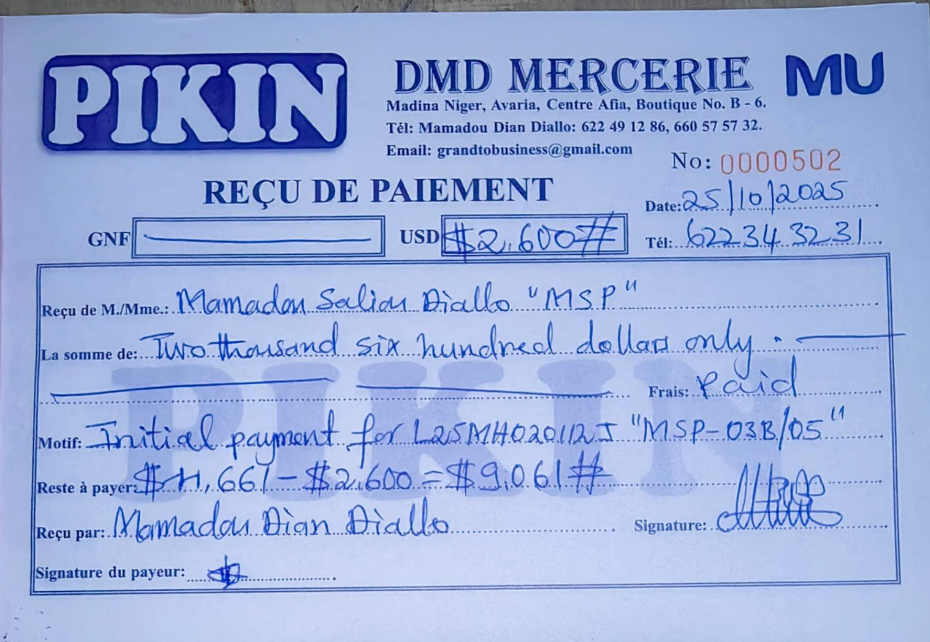 PIKIN
DMD MERCERIE
MU
Madina Niger, Avaria, Centre Afia, Boutique No. B - 6.
Tél: Mamadou Dian Diallo: 622 49 12 86, 660 57 57 32.
Email: grandtobusiness@gmail.com
No: 0000502
REÇU DE PAIEMENT
Date: 25/10/2025
GNF USD $2.600#
Tél: 622 34 32 31
Reçu de M./Mme.: Mamadou Saliou Diallo "MSP"
La somme de: Two thousand six hundred dollars only.
Frais: Paid
Motif: Initial payment for L25MH020112J "MSP-03B/05"
Reste à payer: $11,661 - $2.600 = $9.061#
Reçu par: Mamadou Dian Diallo
Signature:
Signature du payeur:
PIKIN